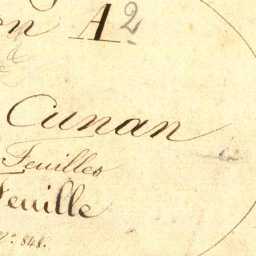 on A2
Cunan
Feuilles
Feuille
N°. 848.